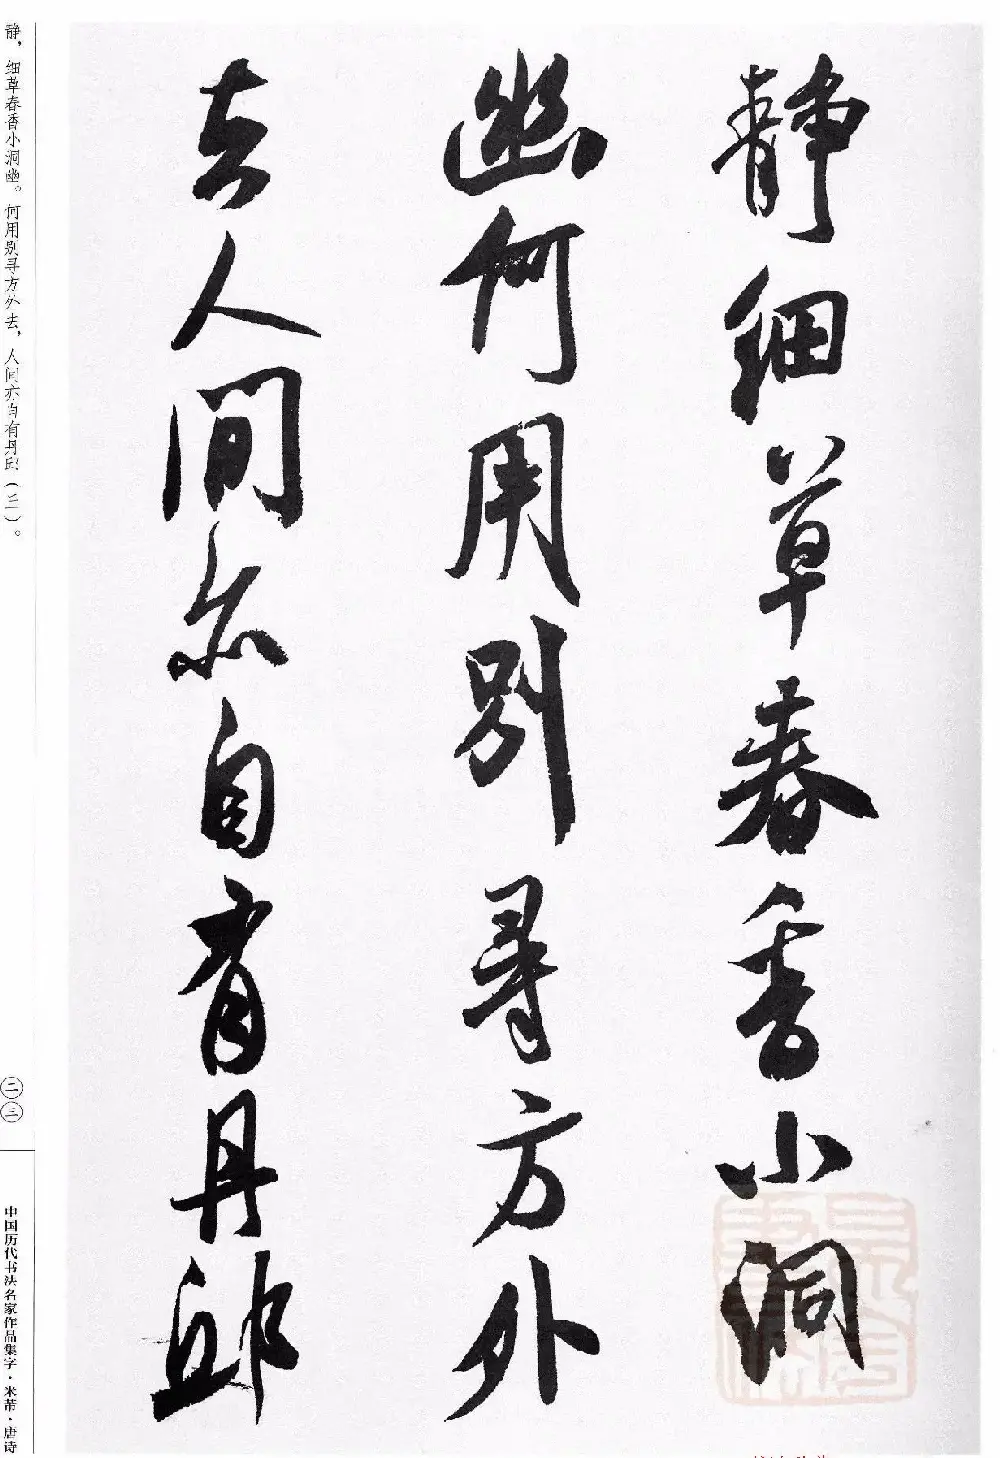 静细草春香小洞
幽何用别寻方外
去人间亦自有丹邱
静，细草春香小洞幽。何用别寻方外去，人间亦自有丹邱（三）。
二三
中国历代书法名家作品集字·米芾·唐诗